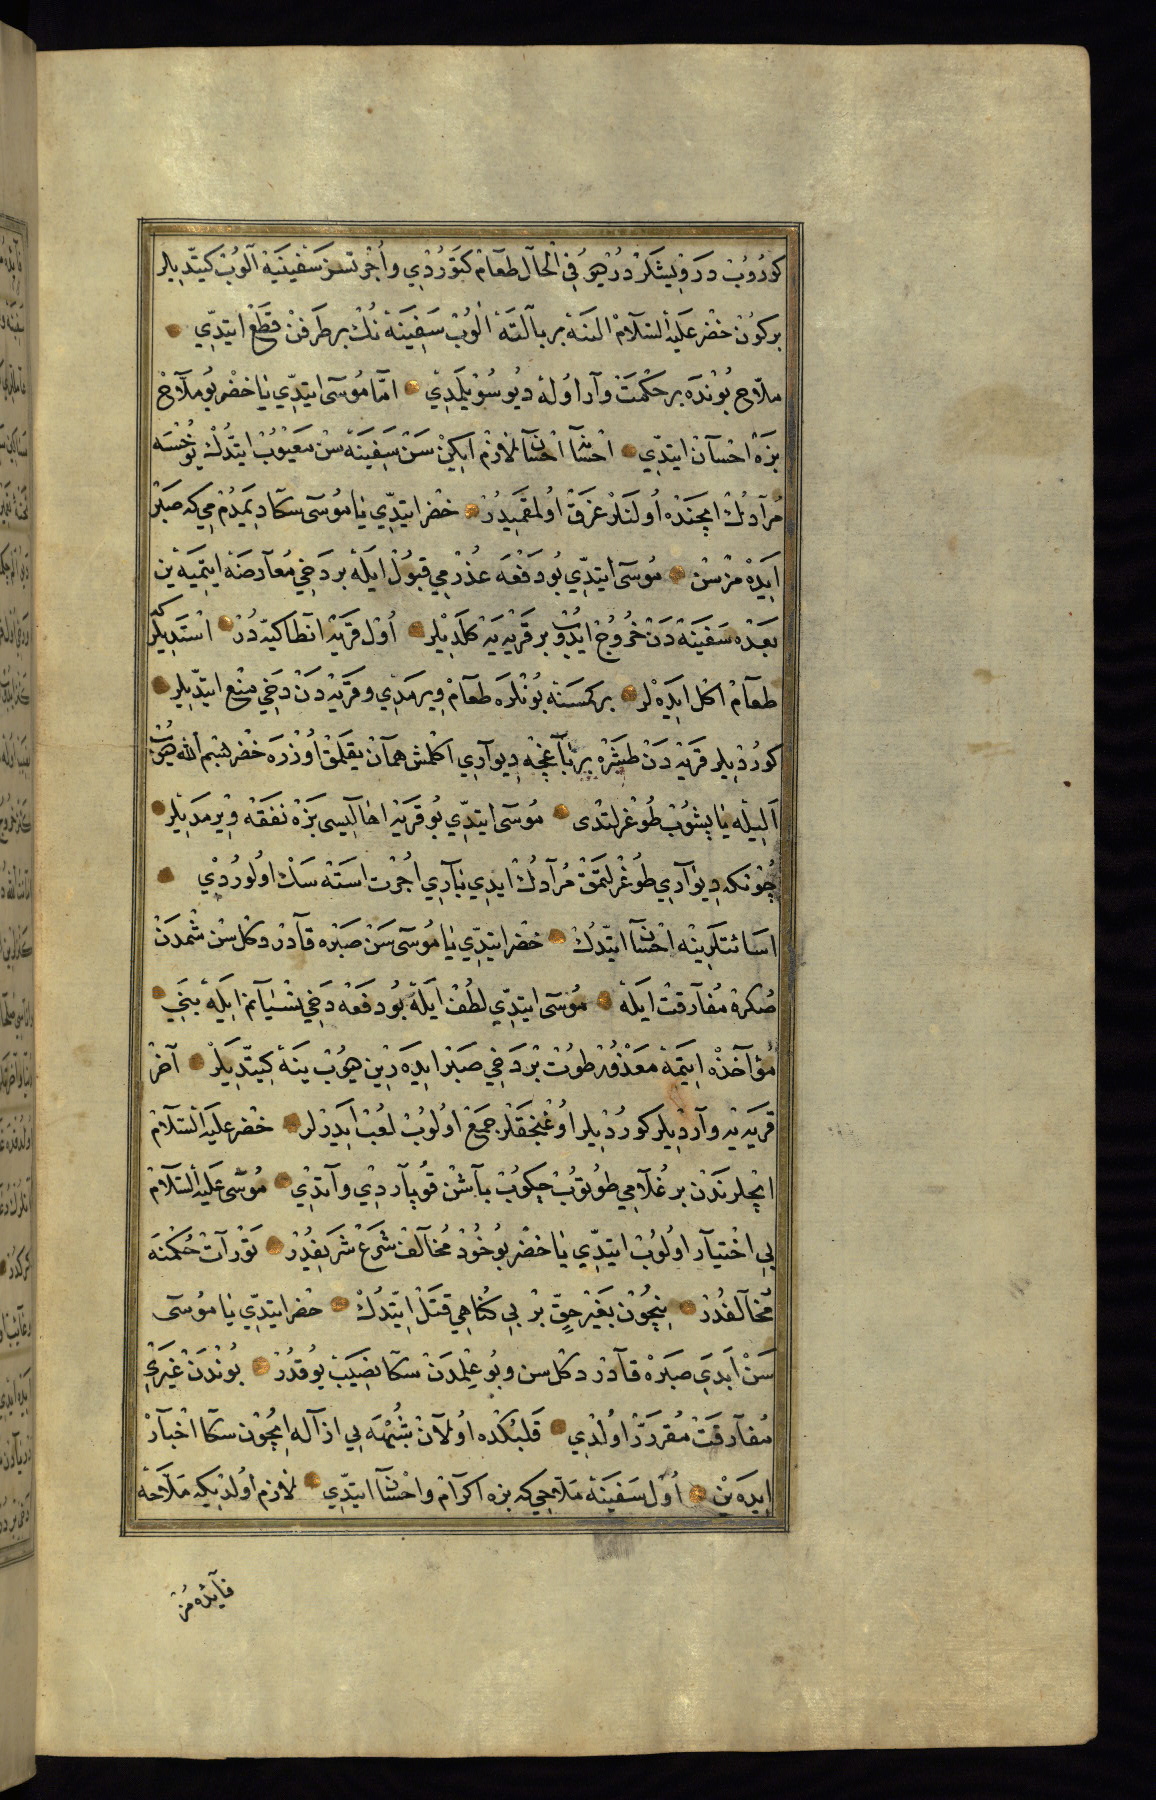 كوروب درويشلردر ديو في الحال طعام كتوردي و اجرتسز سفينيه آلوب كيتديلر
بر كون خضر عليه السلام النه بر بالته آلوب سفينه نك بر طرفن قطع ايتدي
ملاح بونده بر حكمت وار اوله ديو سويلمدي اما موسى ايتدي يا خضر بو ملاح
بزه احسان ايتدي احسانه احسان لازم ايكن سن سفينه سن معيوب ايتدك يوخسه
مرادك ايچنده اولنلر غرق اولمقميدر خضر ايتدي يا موسى سكا ديمدم مي كه صبر
ايده مزسن موسى ايتدي بو دفعه عذرمي قبول ايله بر دخي معارضه ايتميه ين
بعده سفينه دن خروج ايدوب بر قريه يه كلديلر اول قريه انطاكيه در استديلر كه
طعام اكل ايده لر بر كمسنه بونلره طعام ويرمدي و قريه دن دخي منع ايتديلر
كورديلر قريه دن طشره بر باغچه ديواري اكلمش همان يقلمق اوزره خضر بسم الله ديوب
اليله ياپشوب طوغرلتدى موسى ايتدي بو قريه اهاليسى بزه نفقه ويرمديلر
چونكه ديواري طوغرلتمق مرادك ايدي باري اجرت استه سك اولوردي
اسائتلرينه احسان ايتدك خضر ايتدي يا موسى سن صبره قادر دكلسن شمدن
صكره مفارقت ايله موسى ايتدي لطف ايله بو دفعه دخي نسيانم ايله بني
مؤاخذه ايتمه معذور طوت بر دخي صبر ايده رين ديوب ينه كيتديلر آخر
قريه يه وارديلر كورديلر اوغلنجقلر جمع اولوب لعب ايدرلر خضر عليه السلام
ايچلرندن بر غلامي طوتوب چكوب باشن قوپاردي و آتدي موسى عليه السلام
بي اختيار اولوب ايتدي يا خضر بو خود مخالف شرع شريفدر تورات حكمنه
مخالفدر نيچون بغير حق بر بي كناهي قتل ايتدك خضر ايتدي يا موسى
سن ابدي صبره قادر دكلسن و بو علمدن سكا نصيب يوقدر بوندن غيري
مفارقت مقرر اولدي قلبكده اولان شبهه يي ازاله ايچون سكا اخبار
ايده ين اول سفينه ملاحي كه بزه اكرام و احسان ايتدي لازم اولديكه ملاحه
فائده مز